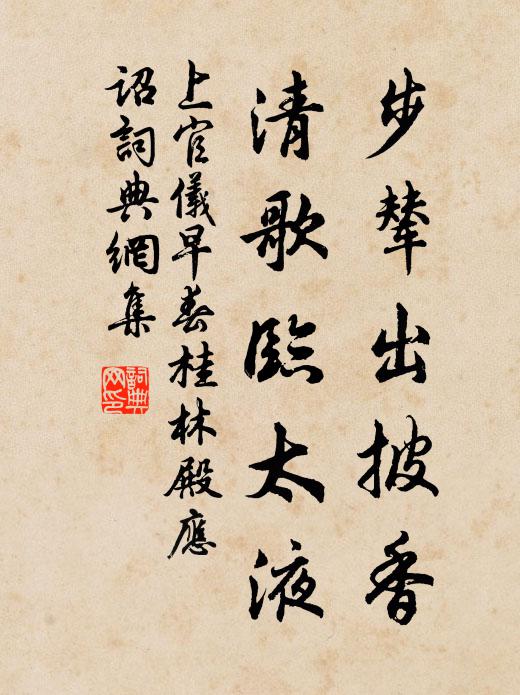 步輦出披香
清歌臨太液
上官儀早春桂林殿應
詔詞典網集
詞典網印